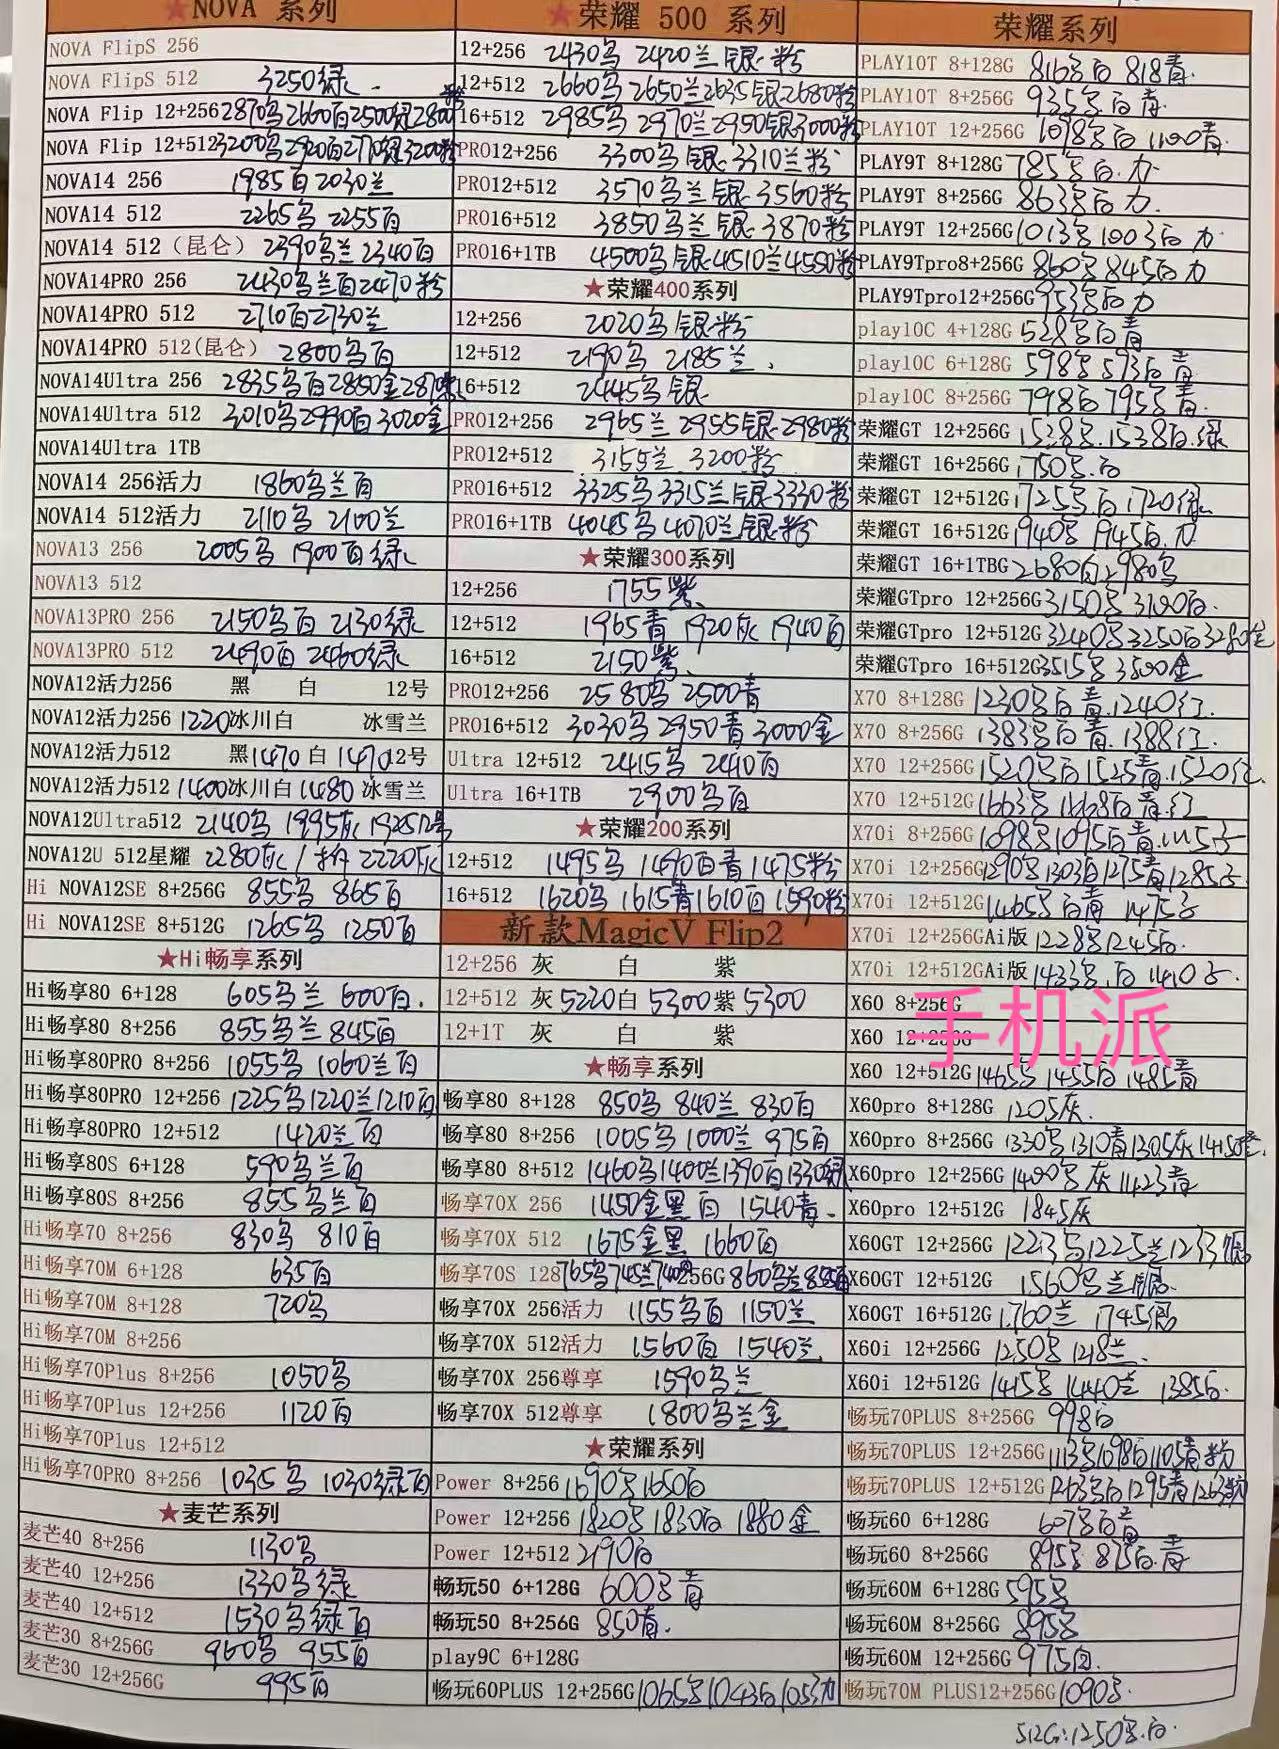 ★NOVA 系列
NOVA FlipS 256
NOVA FlipS 512 3250绿
NOVA Flip 12+256 2870乌 2660白 2500绿 2800粉
NOVA Flip 12+512 3200乌 2920白 2770绿 3200粉
NOVA14 256 1985白 2030兰
NOVA14 512 2265乌 2255白
NOVA14 512（昆仑） 2390乌兰 2340白
NOVA14PRO 256 2430乌兰白 2470粉
NOVA14PRO 512 2710白 2730兰
NOVA14PRO 512(昆仑) 2800乌白
NOVA14Ultra 256 2835乌白 2850金 287
NOVA14Ultra 512 3010乌 2990白 3020金
NOVA14Ultra 1TB
NOVA14 256活力 1860乌兰白
NOVA14 512活力 2110乌 2100兰
NOVA13 256 2005乌 1900白绿
NOVA13 512
NOVA13PRO 256 2150乌白 2130绿
NOVA13PRO 512 2490白 2460绿
NOVA12活力256 黑 白 12号
NOVA12活力256 1220冰川白 冰雪兰
NOVA12活力512 黑1470 白 1470 12号
NOVA12活力512 1400冰川白 1480 冰雪兰
NOVA12Ultra512 2140乌 1995灰 1925 12号
NOVA12U 512星耀 2280灰 / 2220灰
Hi NOVA12SE 8+256G 855乌 865白
Hi NOVA12SE 8+512G 1265乌 1250白
★Hi畅享系列
Hi畅享80 6+128 605乌兰 600白.
Hi畅享80 8+256 855乌兰 845白
Hi畅享80PRO 8+256 1055乌 1060兰白
Hi畅享80PRO 12+256 1225乌 1220兰 1210白
Hi畅享80PRO 12+512 1420兰白
Hi畅享80S 6+128 590乌兰白
Hi畅享80S 8+256 855乌兰白
Hi畅享70 8+256 830乌 810白
Hi畅享70M 6+128 635白
Hi畅享70M 8+128 720乌
Hi畅享70M 8+256
Hi畅享70Plus 8+256 1050乌
Hi畅享70Plus 12+256 1120白
Hi畅享70Plus 12+512
Hi畅享70PRO 8+256 1035乌 1030绿白
★麦芒系列
麦芒40 8+256 1130乌
麦芒40 12+256 1330乌绿
麦芒40 12+512 1530乌绿白
麦芒30 8+256G 960乌 955白
麦芒30 12+256G 995白
★荣耀 500 系列
12+256 2430乌 2420兰银粉
12+512 2660乌 2650兰 2635银 2680粉
16+512 2985乌 2970兰 2950银 3000粉
PRO12+256 3300乌银 3310兰粉
PRO12+512 3570乌兰银 3560粉
PRO16+512 3850乌兰银 3870粉
PRO16+1TB 4500乌银 4510兰 4550粉
★荣耀400系列
12+256 2020乌银粉
12+512 2190乌 2185兰
16+512 2445乌银
PRO12+256 2965兰 2955银 2980粉
PRO12+512 3155兰 3200粉
PRO16+512 3325乌 3315兰银 3330粉
PRO16+1TB 4045乌 4070兰银粉
★荣耀300系列
12+256 1755紫
12+512 1965青 1920灰 1940白
16+512 2150紫
PRO12+256 2580乌 2500青
PRO16+512 3030乌 2950青 3000金
Ultra 12+512 2415乌 2410白
Ultra 16+1TB 2900乌白
★荣耀200系列
12+512 1495乌 1490白青 1475粉
16+512 1620乌 1615青 1610白 1590粉
新款MagicV Flip2
12+256 灰 白 紫
12+512 灰 5220 白 5300 紫 5300
12+1T 灰 白 紫
★畅享系列
畅享80 8+128 850乌 840兰 830白
畅享80 8+256 1005乌 1000兰 975白
畅享80 8+512 1460乌 1400兰 1390白 1330绿
畅享70X 256 1450金黑白 1540青
畅享70X 512 1675金黑 1660白
畅享70S 128 765乌 745兰 740 256G 860乌兰 855白
畅享70X 256活力 1155乌白 1150兰
畅享70X 512活力 1560白 1540兰
畅享70X 256尊享 1590乌兰
畅享70X 512尊享 1800乌兰金
★荣耀系列
Power 8+256 1690乌 1650白
Power 12+256 1820乌 1830白 1880金
Power 12+512 2190白
畅玩50 6+128G 600乌青
畅玩50 8+256G 850青.
play9C 6+128G
畅玩60PLUS 12+256G 1065乌 1043白 1053力
荣耀系列
PLAY10T 8+128G 816乌白 818青
PLAY10T 8+256G 935乌白青
PLAY10T 12+256G 1098乌白 1100青
PLAY9T 8+128G 785乌白力
PLAY9T 8+256G 863乌白力
PLAY9T 12+256G 1013乌 1003白力
PLAY9Tpro8+256G 860乌 845白力
PLAY9Tpro12+256G 953乌白力
play10C 4+128G 528乌白青
play10C 6+128G 598乌 593白青
play10C 8+256G 798白 795乌青
荣耀GT 12+256G 1528乌 1538白绿
荣耀GT 16+256G 1750乌白
荣耀GT 12+512G 1725乌白 1720绿
荣耀GT 16+512G 1940乌 1945白力
荣耀GT 16+1TBG 2680白 2980乌
荣耀GTpro 12+256G 3150乌 3190白
荣耀GTpro 12+512G 3240乌 3250白 3280金
荣耀GTpro 16+512G 3515乌 3500金
X70 8+128G 1230乌白青 1240红
X70 8+256G 1383乌白青 1388红
X70 12+256G 1520乌白 1525青 1520红
X70 12+512G 1663乌 1668白青红
X70i 8+256G 1098乌 1095白青 1115子
X70i 12+256G 1290乌 1303白 1275青 1285子
X70i 12+512G 1465乌白青 1475子
X70i 12+256GAi版 1228乌 1245白
X70i 12+512GAi版 1433乌白 1410子
X60 8+256G
X60 12+256G
手机派
X60 12+512G 1465乌 1455白 1485青
X60pro 8+128G 1205灰
X60pro 8+256G 1330乌 1310青 1305灰 1415
X60pro 12+256G 1400乌灰 1423青
X60pro 12+512G 1845灰
X60GT 12+256G 1223乌 1225兰 12 银
X60GT 12+512G 1560乌兰银
X60GT 16+512G 1760兰 1745银
X60i 12+256G 1250乌 1218兰
X60i 12+512G 1415乌 1440兰 1385白
畅玩70PLUS 8+256G 998白
畅玩70PLUS 12+256G 1113乌 1098白 1105青粉
畅玩70PLUS 12+512G 1263乌白 1295青 1263粉
畅玩60 6+128G 607乌白青
畅玩60 8+256G 895乌 875白青
畅玩60M 6+128G 595乌
畅玩60M 8+256G 895乌
畅玩60M 12+256G 975白
畅玩70M PLUS12+256G 1090乌
512G:1250乌白